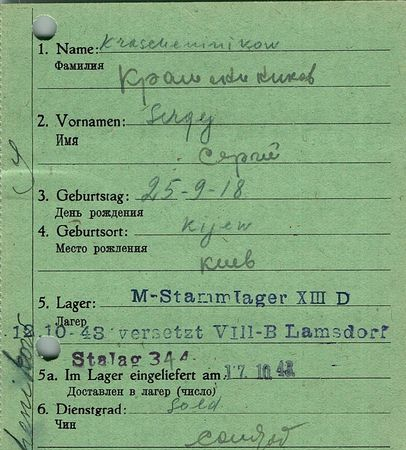 1. Name: Krascheninikow
Фамилия
Крашениников
2. Vornamen: Sergej
Имя
Сергей
3. Geburtstag: 25-9-18
День рождения
4. Geburtsort: Kijew
Место роления
Киев
5. Lager: M-Stammlager XIII D
Лагер
12.10.43 versetzt VIII-B Lamsdorf
Stalag 344
5a. Im Lager eingeliefert am 17.10.43
Доставлен в лагер (число)
6. Dienstgrad: Sold
Чин